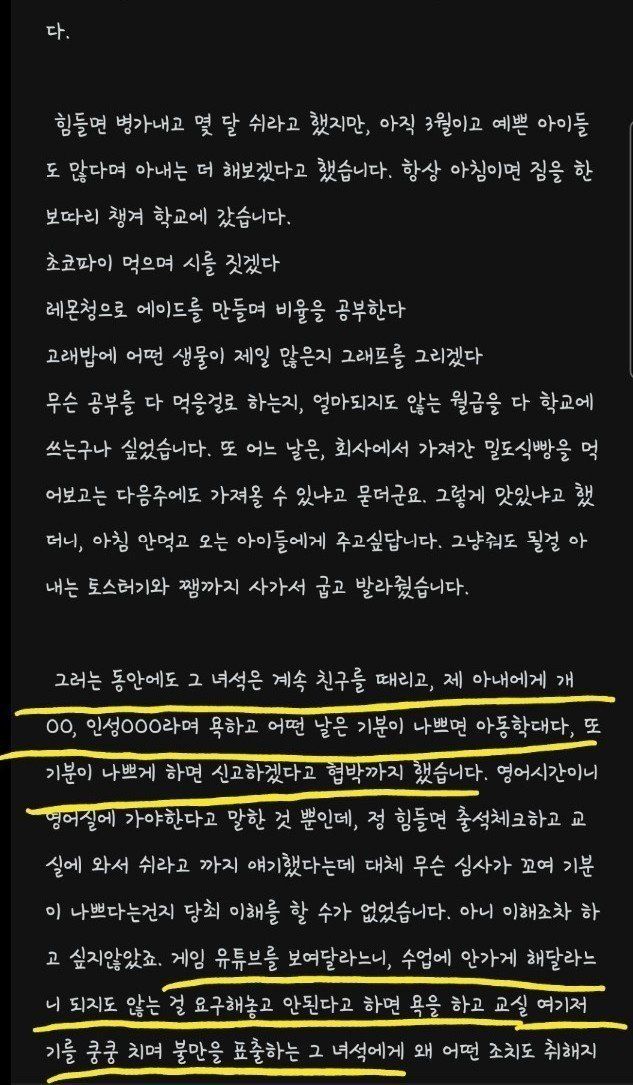 다.
힘들면 병가내고 몇 달 쉬라고 했지만, 아직 3월이고 예쁜 아이들
도 많다며 아내는 더 해보겠다고 했습니다. 항상 아침이면 짐을 한
보따리 챙겨 학교에 갔습니다.
초코파이 먹으며 시를 짓겠다
레몬청으로 에이드를 만들며 비율을 공부한다
고래밥에 어떤 생물이 제일 많은지 그래프를 그리겠다
무슨 공부를 다 먹을걸로 하는지, 얼마되지도 않는 월급을 다 학교에
쓰는구나 싶었습니다. 또 어느 날은, 회사에서 가져간 밀도식빵을 먹
어보고는 다음주에도 가져올 수 있냐고 묻더군요. 그렇게 맛있냐고 했
더니, 아침 안먹고 오는 아이들에게 주고싶답니다. 그냥줘도 될걸 아
내는 토스터기와 쨈까지 사가서 굽고 발라줬습니다.
그러는 동안에도 그 녀석은 계속 친구를 때리고, 제 아내에게 개
OO, 인성OOO라며 욕하고 어떤 날은 기분이 나쁘면 아동학대다, 또
기분이 나쁘게 하면 신고하겠다고 협박까지 했습니다. 영어시간이니
영어실에 가야한다고 말한 것 뿐인데, 정 힘들면 출석체크하고 교
실에 와서 쉬라고 까지 얘기했다는데 대체 무슨 심사가 꼬여 기분
이 나쁘다는건지 당최 이해를 할 수가 없었습니다. 아니 이해조차 하
고 싶지않았죠. 게임 유튜브를 보여달라느니, 수업에 안가게 해달라느
니 되지도 않는 걸 요구해놓고 안된다고 하면 욕을 하고 교실 여기저
기를 쿵쿵 치며 불만을 표출하는 그 녀석에게 왜 어떤 조치도 취해지